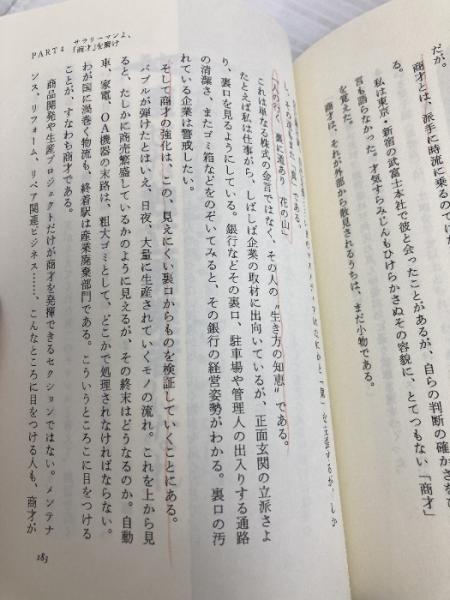 だが。
商才とは、派手に時流に乗るのでは
私は東京・新宿の武富士本社で彼と会ったことがあるが、自らの判断の確かさ
言も語らなかった。才気すらみじんもひけらかさぬその容貌に、とてつもない「商才」
を覚えた。
商才は、それが外部から散見されるうちは、まだ小物である。
するが、しか
し、その
人の行く 裏に道あり 花の山
これは単なる株式の金言ではなく、その人の〝生き方の知恵〟である。
たとえば私は仕事がら、しばしば企業の取材に出向いているが、正面玄関の立派さよ
り、裏口を見るようにしている。銀行などその裏口、駐車場や管理人の出入りする通路
の清潔さ、またゴミ箱などをのぞいてみると、その銀行の経営姿勢がわかる。裏口の汚
れている企業は警戒したい。
そして商才の強化は、この、見えにくい裏口からものを検証していくことにある。
バブルが弾けたとはいえ、日夜、大量に生産されていくモノの流れ。これを上から見
ると、たしかに商売繁盛しているかのように見えるが、その終末はどうなるのか。自動
車、家電、OA機器の末路は、粗大ゴミとして、どこかで処理されなければならない。
わが国に渦巻く物流も、終着駅は産業廃棄部門である。こういうところに目をつける
ことが、すなわち商才である。
商品開発や生産プロジェクトだけが商才を発揮できるセクションではない。メンテナ
ンス、リフォーム、リペア関連ビジネス……、こんなところに目をつける人も、商才が
PART4 サラリーマンよ、「商才」を磨け
183